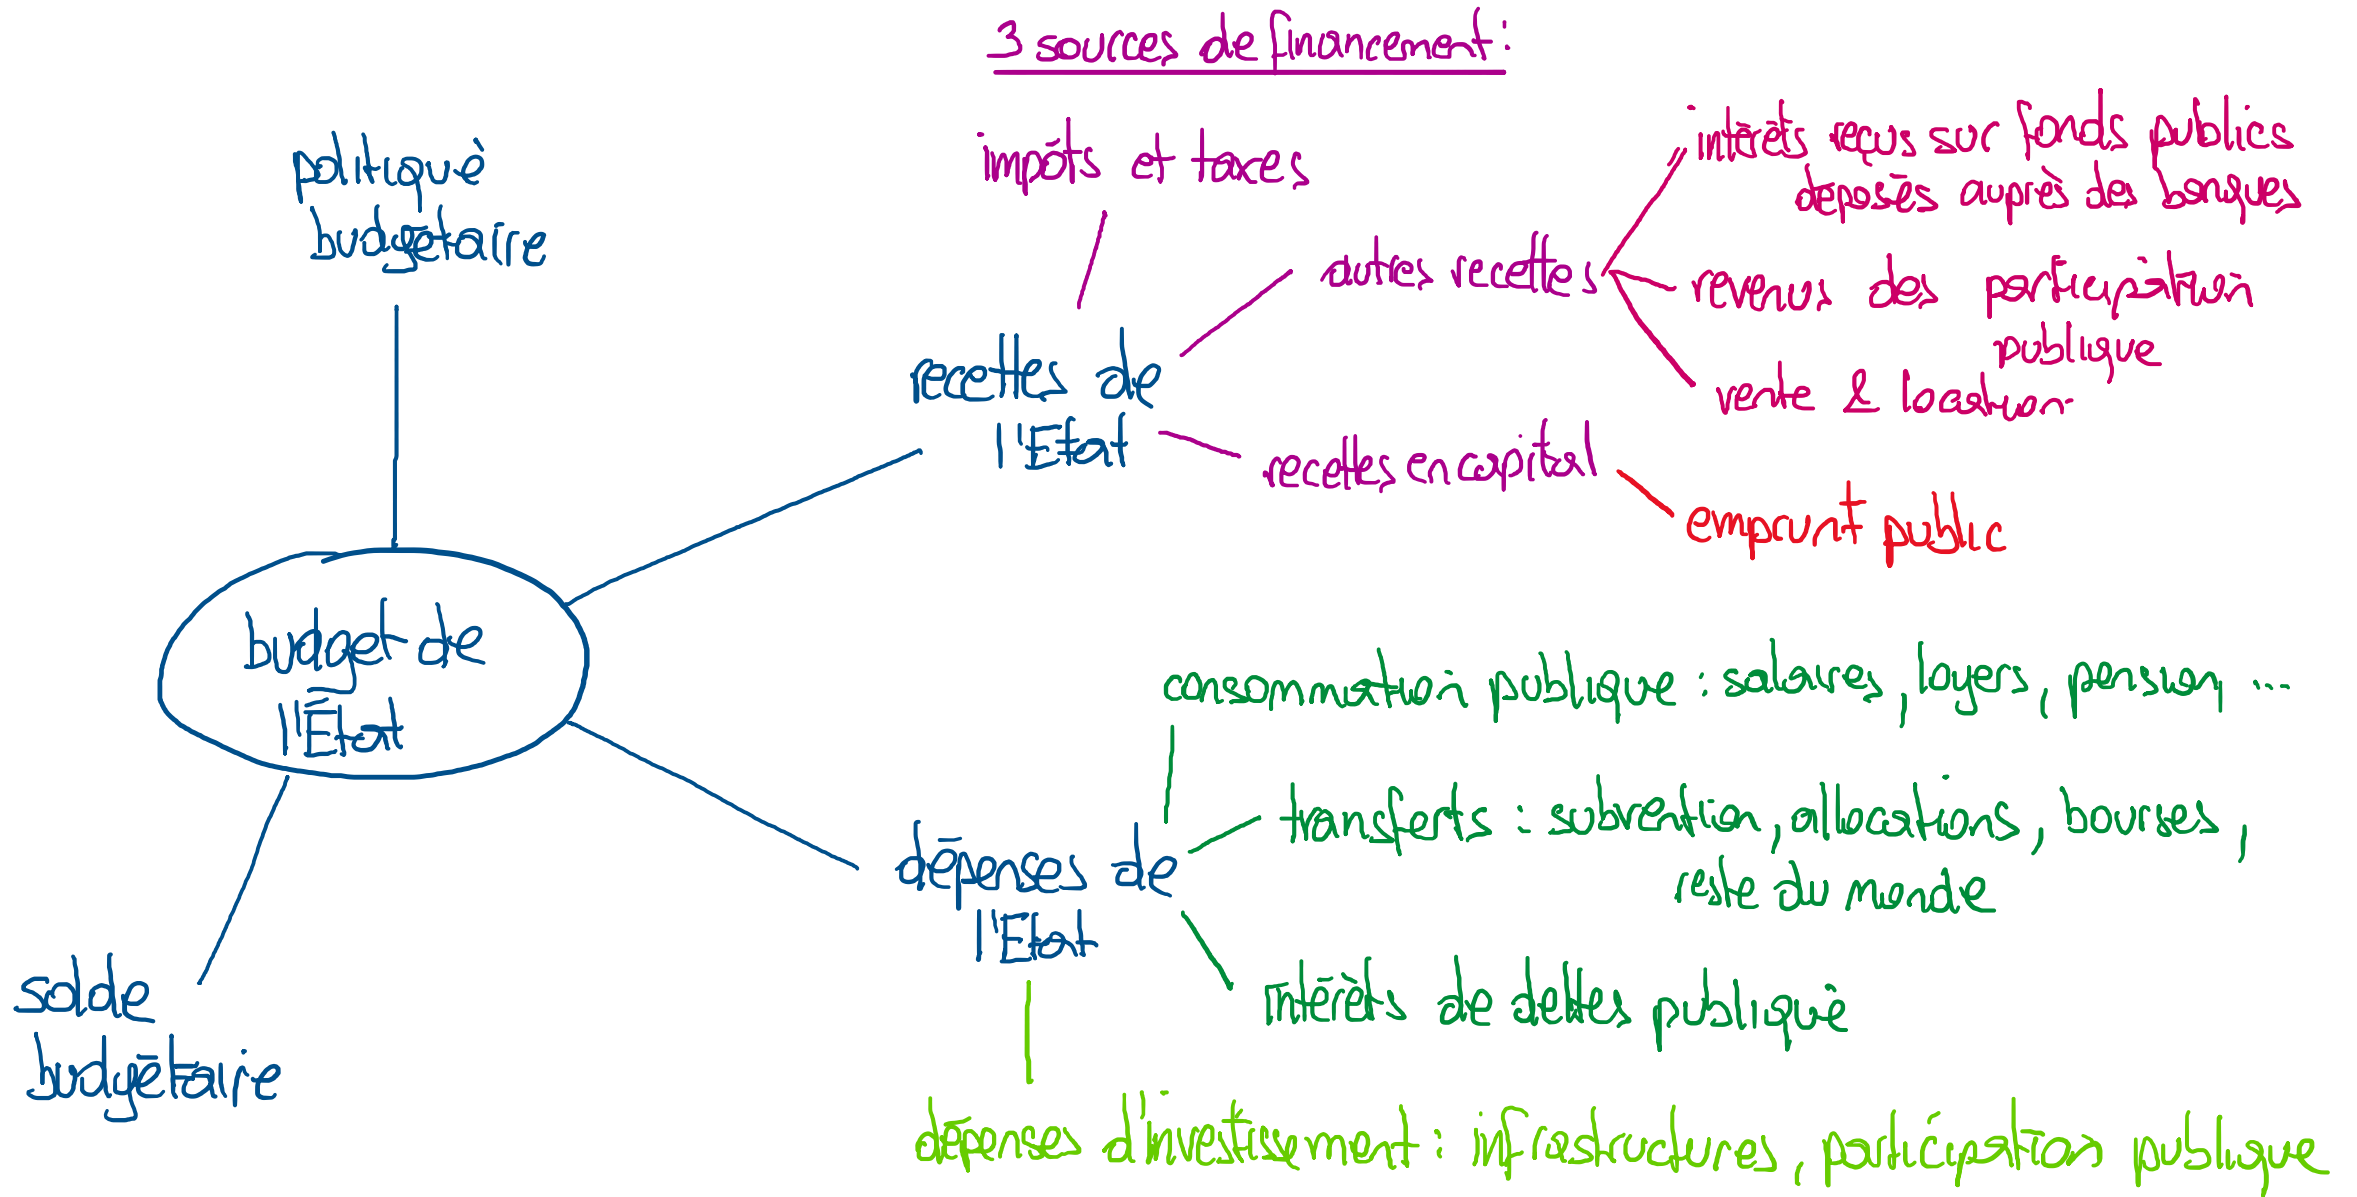 3 sources de financement :
impôts et taxes
intérêts reçus sur fonds publics
déposés auprès des banques
politique
budgétaire
autres recettes
revenus des participation
publique
recettes de
l'Etat
vente & location
recettes en capital
emprunt public
budget de
l'État
consommation publique : salaires, loyers, pension, ...
transferts : subvention, allocations, bourses,
reste du monde
dépenses de
l'Etat
intérêts de dettes publique
solde
budgétaire
dépenses d'investissement : infrastructures, participation publique